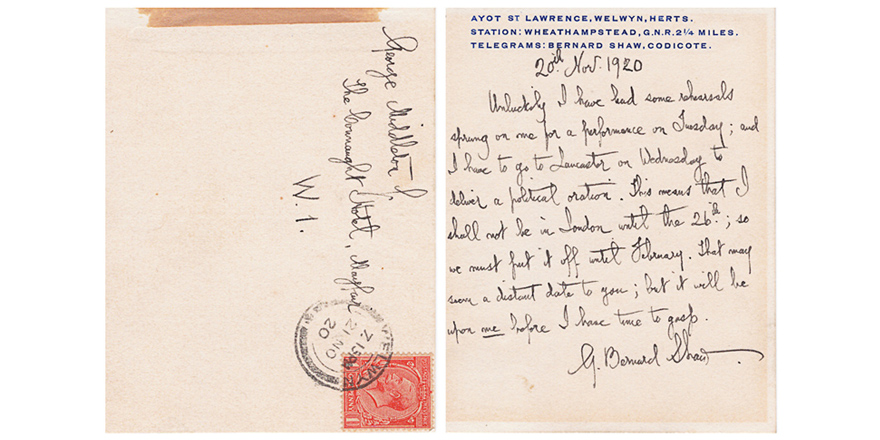 George Middleton
The Connaught Hotel, Mayfair
W. 1.
WELWYN
7.15PM
21 NO
20
AYOT ST LAWRENCE, WELWYN, HERTS.
STATION: WHEATHAMPSTEAD, G.N.R. 2¼ MILES.
TELEGRAMS: BERNARD SHAW, CODICOTE.
20th Nov. 1920
Unluckily I have had some rehearsals
sprung on me for a performance on Tuesday; and
I have to go to Lancaster on Wednesday to
deliver a political oration. This means that I
shall not be in London until the 26th; so
we must put it off until February. That may
seem a distant date to you; but it will be
upon me before I have time to gasp.
G. Bernard Shaw